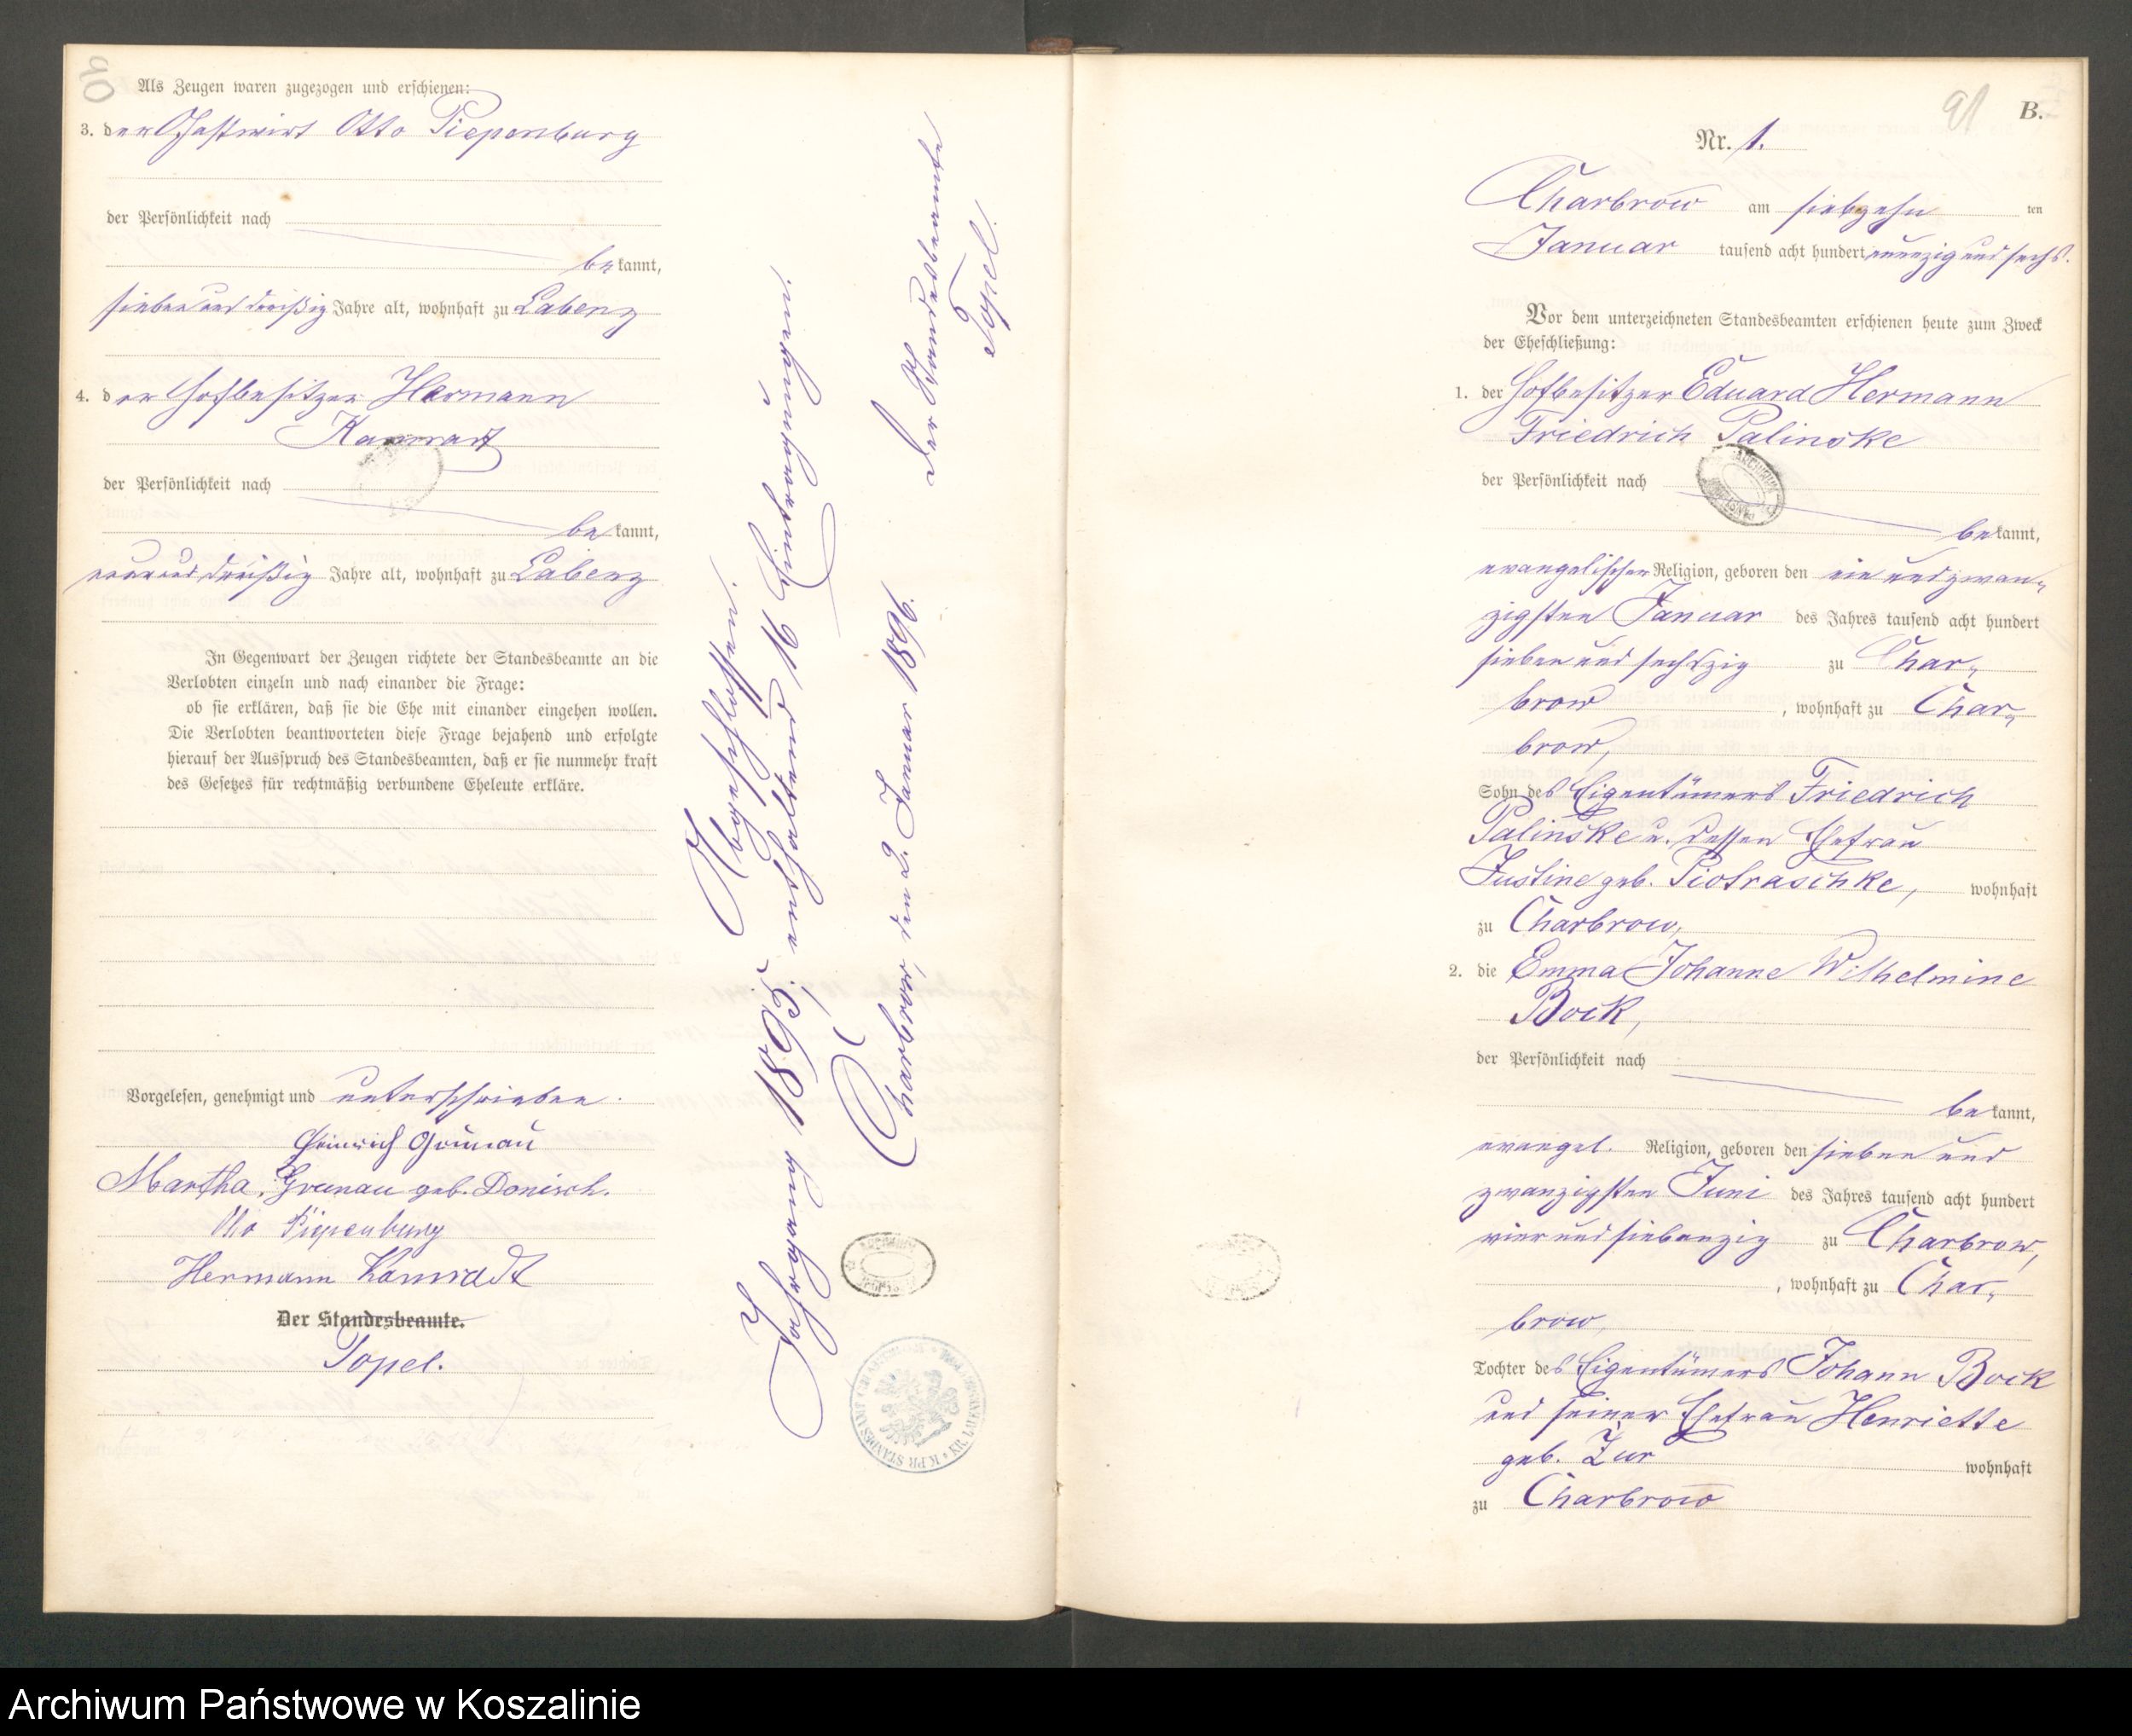 90
Als Zeugen waren zugezogen und erschienen:
3. der Gastwirt Otto Piepenburg
der Persönlichkeit nach
bekannt,
siebenunddreißig Jahre alt, wohnhaft zu Labenz
4. der Hofbesitzer Hermann
der Persönlichkeit nach
bekannt,
neununddreißig Jahre alt, wohnhaft zu Labenz
In Gegenwart der Zeugen richtete der Standesbeamte an die
Verlobten einzeln und nach einander die Frage:
ob sie erklären, daß sie die Ehe mit einander eingehen wollen.
Die Verlobten beantworteten diese Frage bejahend und erfolgte
hierauf der Ausspruch des Standesbeamten, daß er sie nunmehr kraft
des Gesetzes für rechtmäßig verbundene Eheleute erkläre.
Vorgelesen, genehmigt und unterschrieben.
Heinrich Grunau
Martha Grunau geb. Donisch.
Otto Piepenburg
Hermann
Der Standesbeamte.
Topel.
Abgeschlossen.
Jahrgang 1895, enthaltend 16 Eintragungen.
Charbrow, den 2. Januar 1896.
Der Standesbeamte
Topel.
91
B.
Nr. 1.
Charbrow am siebzehn ten
Januar tausend acht hundert neunzig und sechs.
Vor dem unterzeichneten Standesbeamten erschienen heute zum Zweck
der Eheschließung:
1. der Hofbesitzer Eduard Hermann
Friedrich Palinske
der Persönlichkeit nach
bekannt,
evangelischer Religion, geboren den ein und zwan-
zigsten Januar des Jahres tausend acht hundert
sieben und sechszig zu Char-
brow, wohnhaft zu Char-
brow,
Sohn des Eigentümers Friedrich
Palinske u. dessen Ehefrau
Justine geb. Piotraschke, wohnhaft
zu Charbrow,
2. die Emma Johanne Wilhelmine
Bock,
der Persönlichkeit nach
bekannt,
evangel. Religion, geboren den sieben und
zwanzigsten Juni des Jahres tausend acht hundert
vier und siebenzig zu Charbrow,
, wohnhaft zu Char-
brow,
Tochter des Eigentümers Johann Bock
und seiner Ehefrau Henriette
geb. Zur wohnhaft
zu Charbrow
Archiwum Państwowe w Koszalinie